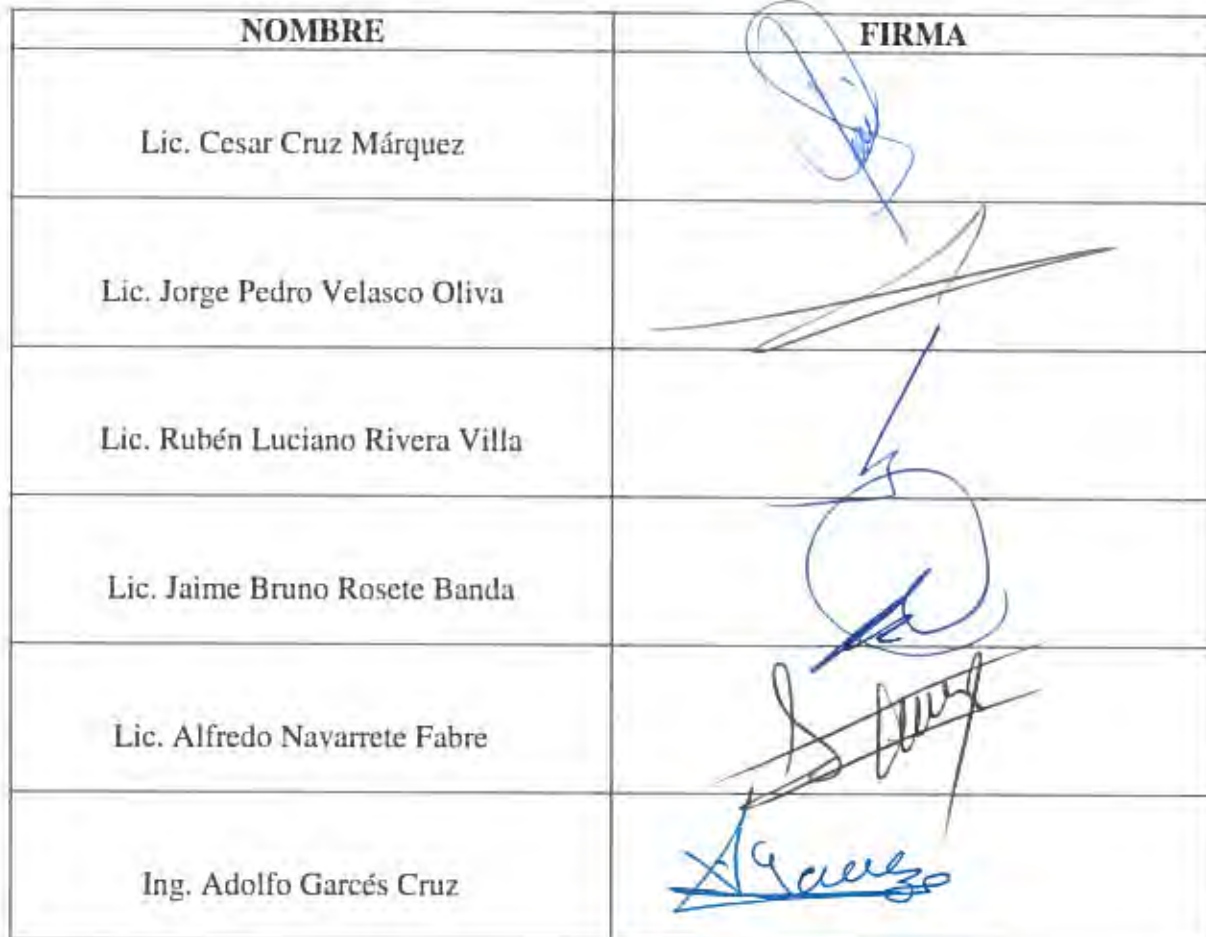 NOMBRE FIRMA
Lic. Cesar Cruz Márquez
Lic. Jorge Pedro Velasco Oliva
Lic. Rubén Luciano Rivera Villa
Lic. Jaime Bruno Rosete Banda
Lic. Alfredo Navarrete Fabre
Ing. Adolfo Garcés Cruz